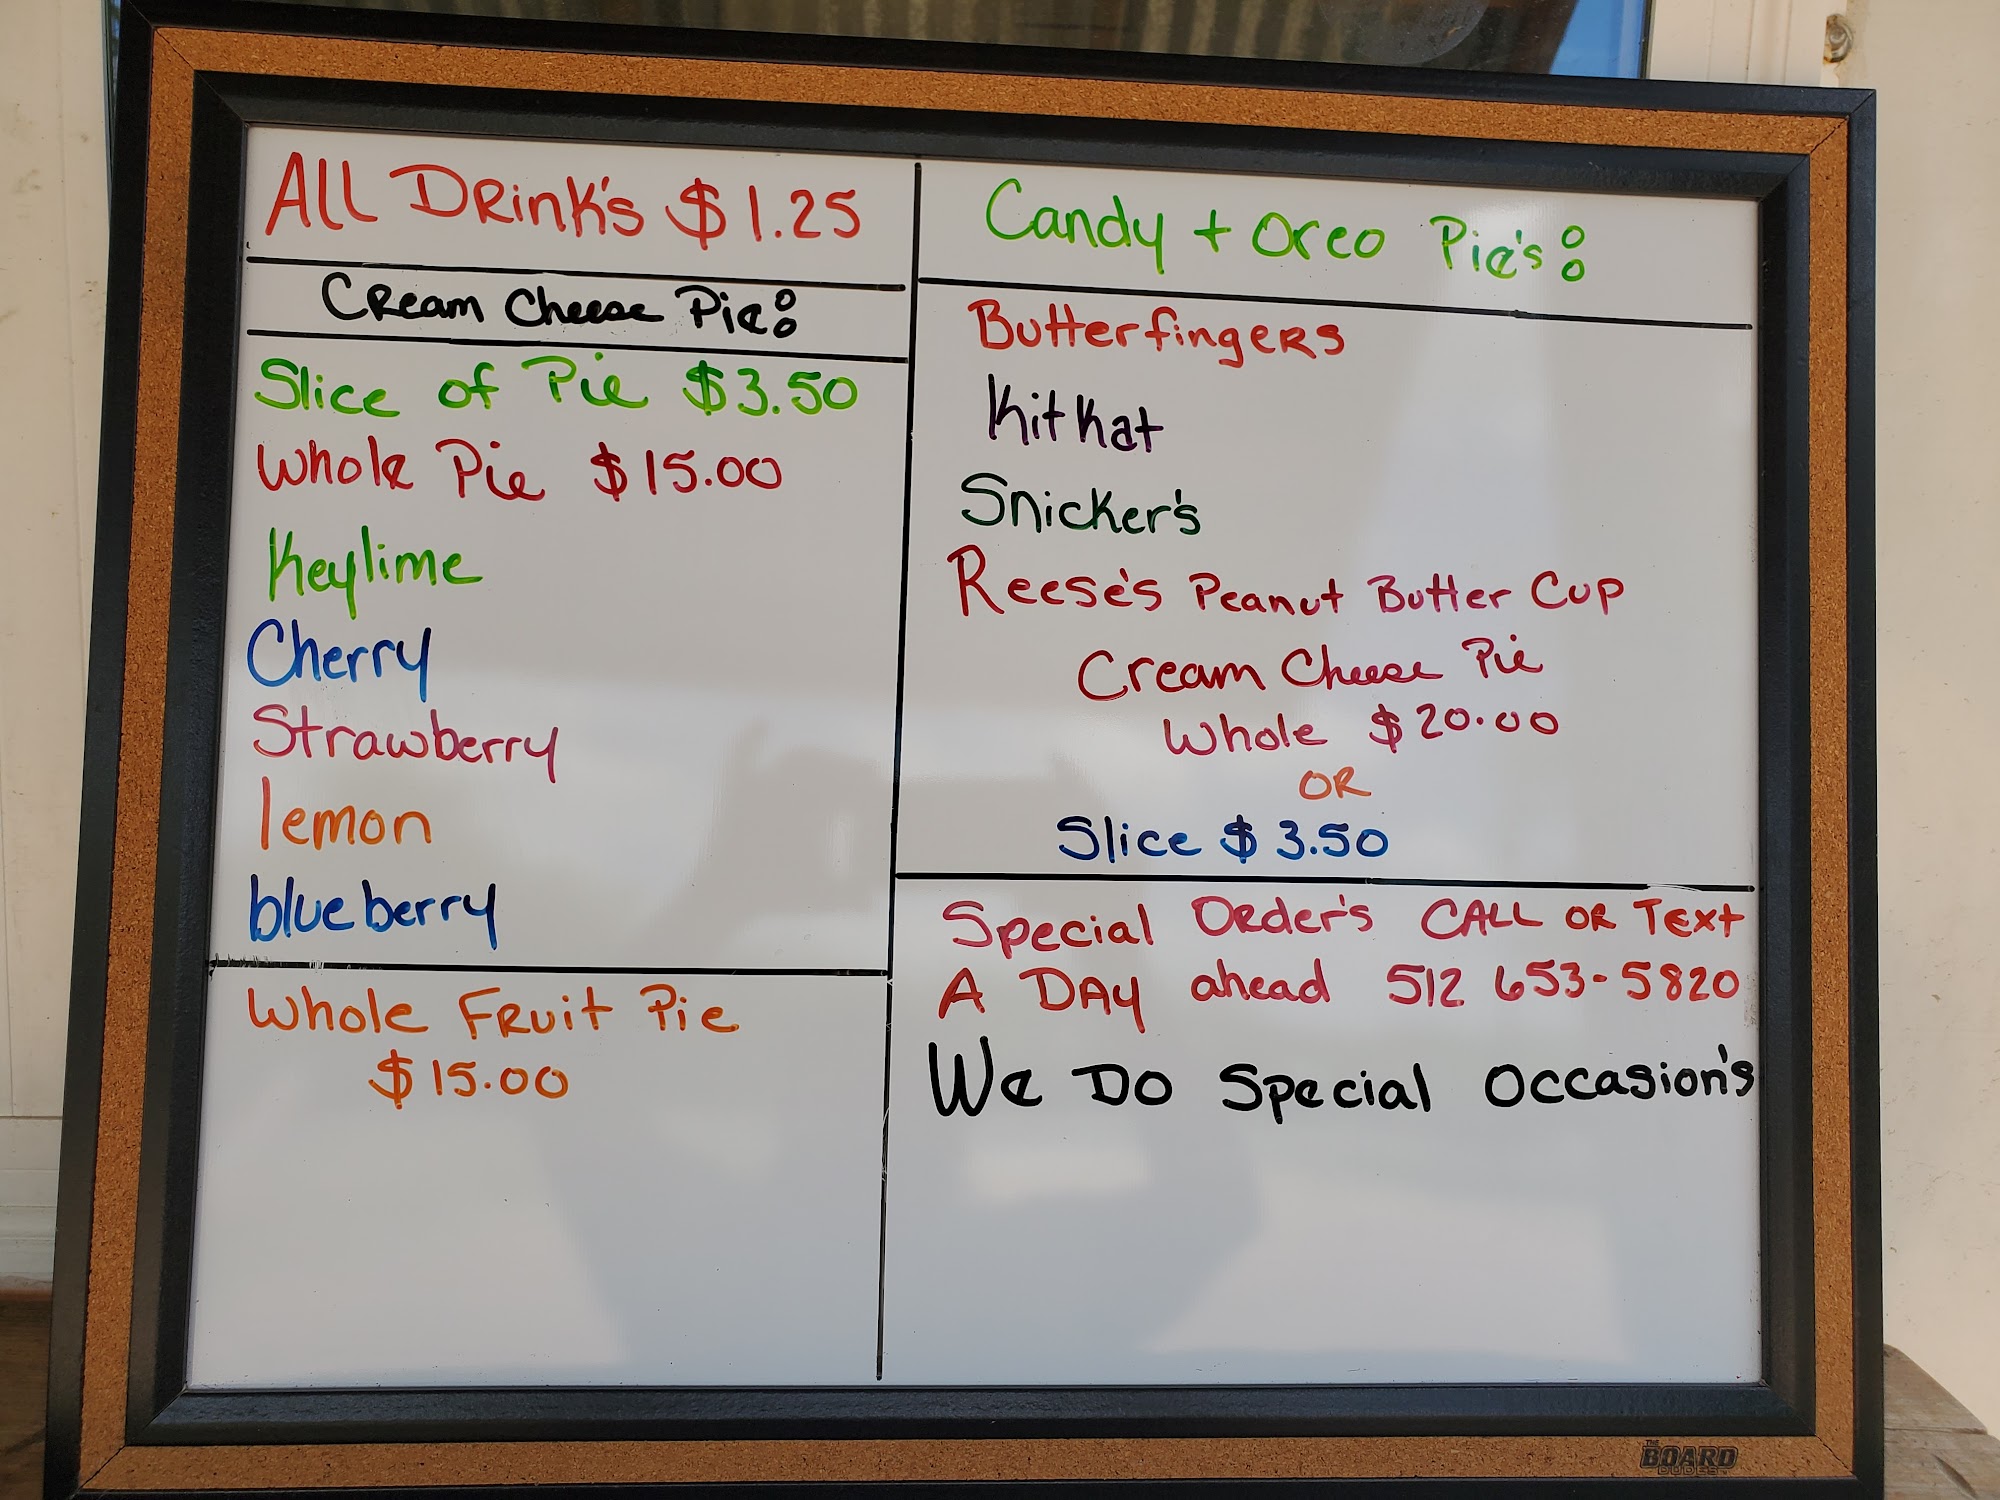 All Drink's $1.25
Cream Cheese Pie:
Slice of Pie $3.50
Whole Pie $15.00
Keylime
Cherry
Strawberry
lemon
blueberry
Whole Fruit Pie
$15.00
Candy + Oreo Pie's:
Butterfingers
KitKat
Snicker's
Reese's Peanut Butter Cup
Cream Cheese Pie
Whole $20.00
OR
Slice $3.50
Special Order's CALL OR Text
A DAY ahead 512 653-5820
We Do Special Occasion's
THE
BOARD
DUDES